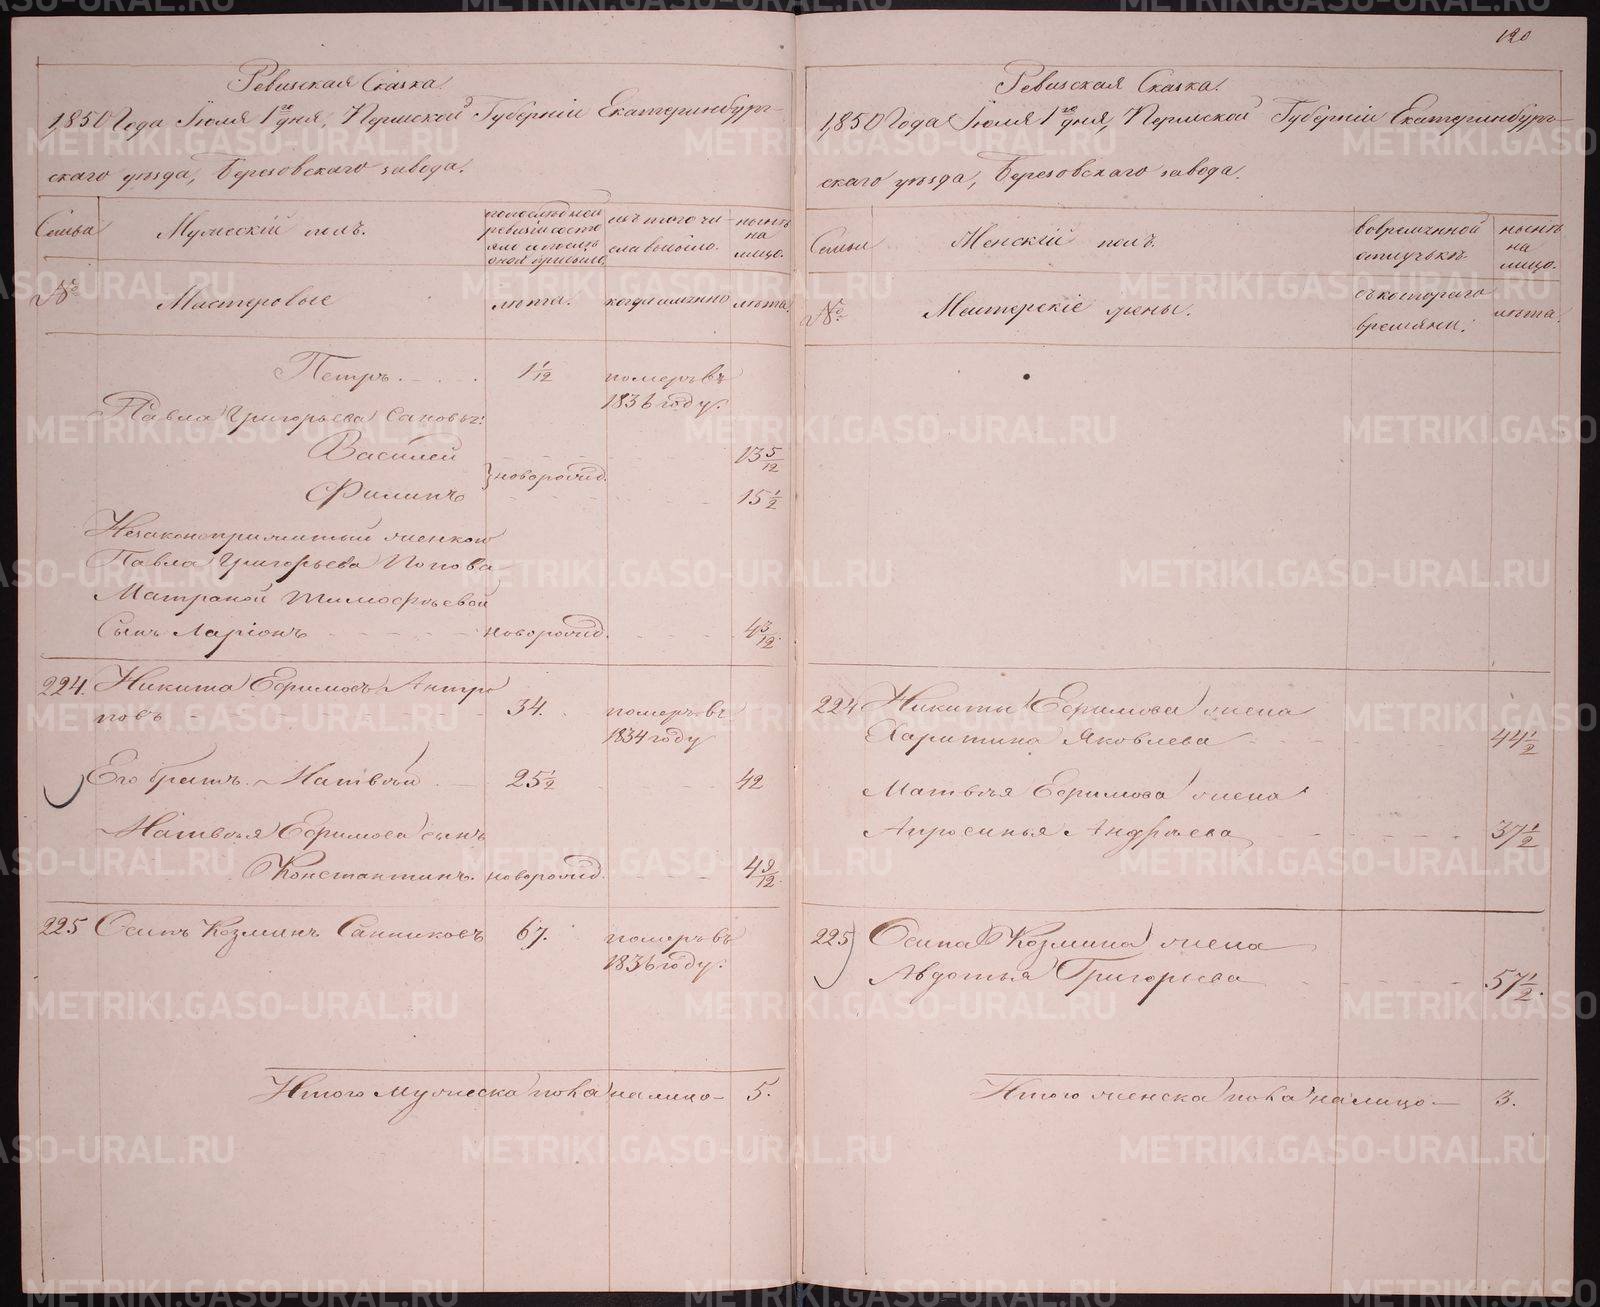 120
Ревизская Сказка.
1850 Года Июля 1го дня, Пермской Губерніи Екатеринбург-
скаго уѣзда, Березовскаго завода.
Семьи
Мужескій полъ.
по последней ревизіи состояло и после оной прибыло.
изъ того числа выбыло.
нынѣ на лицо.
№
Мастеровые
лѣта.
когда имянно
лѣта.
Петръ
1 1/12
померъ въ
1836 году.
Павла Григорьева Сановья:
Василей
новорожд.
13 5/12
Филипъ
15 1/2
Незаконоприжитый женкою
Павла Григорьева Попова
Матреной Тимофѣевой
Сынъ Ларіонъ
новорожд.
4 3/12
224. Никита Ефимовъ Антро
повъ
34.
померъ въ
1834 году
Его братъ Матвѣй
25 1/2
42
Матвѣя Ефимова сынъ
Константинъ.
новорожд.
4 9/12
225 Осипъ Козминъ Санниковъ
67.
померъ въ
1836 году.
Итого мужеска пола на лицо
5.
Ревизская Сказка.
1850 Года Июля 1го дня, Пермской Губерніи Екатеринбург-
скаго уѣзда, Березовскаго завода.
Семьи
Женскій полъ.
во временной отлучкѣ
нынѣ на лицо.
№
Мастерскіе жены.
съ котораго времяни.
лѣта.
224 Никиты Ефимова жена
Харитина Яковлева
44 1/2
Матвѣя Ефимова жена
Апросинья Андрѣева
37 1/2
225 Осипа Козмина жена
Авдотья Григорьева
57 1/2.
Итого женска пола на лицо
3.
METRIKI.GASO-URAL.RU